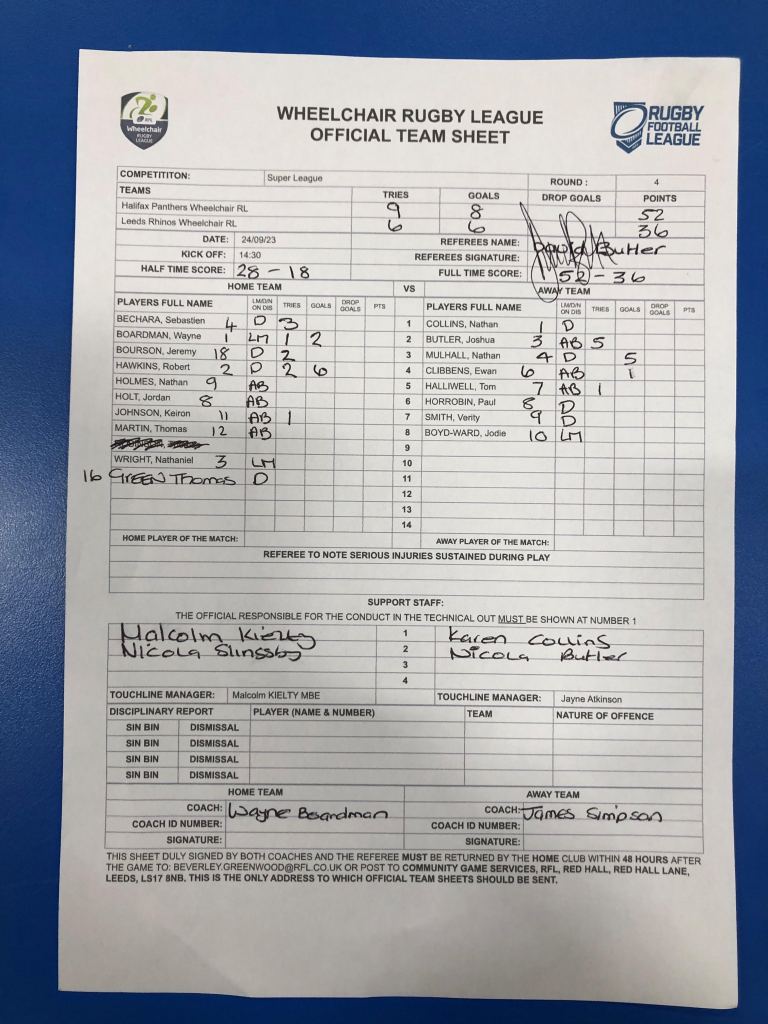 RFL
Wheelchair
RUGBY
LEAGUE
WHEELCHAIR RUGBY LEAGUE
OFFICIAL TEAM SHEET
RUGBY
FOOTBALL
LEAGUE
COMPETITITON: Super League ROUND : 4
TEAMS TRIES GOALS DROP GOALS POINTS
Halifax Panthers Wheelchair RL 9 8 52
Leeds Rhinos Wheelchair RL 6 6 36
DATE: 24/09/23 REFEREES NAME: David Butler
KICK OFF: 14:30 REFEREES SIGNATURE:
HALF TIME SCORE: 28 - 18 FULL TIME SCORE: 52 - 36
HOME TEAM VS AWAY TEAM
PLAYERS FULL NAME LM/D/N ON DIS TRIES GOALS DROP GOALS PTS PLAYERS FULL NAME LM/D/N ON DIS TRIES GOALS DROP GOALS PTS
BECHARA, Sebastien 4 D 3 1 COLLINS, Nathan 1 D
BOARDMAN, Wayne 1 LM 1 2 2 BUTLER, Joshua 3 AB 5
BOURSON, Jeremy 18 D 2 3 MULHALL, Nathan 4 D 5
HAWKINS, Robert 2 D 2 6 4 CLIBBENS, Ewan 6 AB 1
HOLMES, Nathan 9 AB 5 HALLIWELL, Tom 7 AB 1
HOLT, Jordan 8 AB 6 HORROBIN, Paul 8 D
JOHNSON, Keiron 11 AB 1 7 SMITH, Verity 9 D
MARTIN, Thomas 12 AB 8 BOYD-WARD, Jodie 10 LM
9
WRIGHT, Nathaniel 3 LM 10
16 GREEN Thomas D 11
12
13
14
HOME PLAYER OF THE MATCH: AWAY PLAYER OF THE MATCH:
REFEREE TO NOTE SERIOUS INJURIES SUSTAINED DURING PLAY
SUPPORT STAFF:
THE OFFICIAL RESPONSIBLE FOR THE CONDUCT IN THE TECHNICAL OUT MUST BE SHOWN AT NUMBER 1
Malcolm Kielty 1 Karen Collins
Nicola Slinssby 2 Nicola Butler
3
4
TOUCHLINE MANAGER: Malcolm KIELTY MBE TOUCHLINE MANAGER: Jayne Atkinson
DISCIPLINARY REPORT PLAYER (NAME & NUMBER) TEAM NATURE OF OFFENCE
SIN BIN DISMISSAL
SIN BIN DISMISSAL
SIN BIN DISMISSAL
SIN BIN DISMISSAL
HOME TEAM AWAY TEAM
COACH: Wayne Boardman COACH: James Simpson
COACH ID NUMBER: COACH ID NUMBER:
SIGNATURE: SIGNATURE:
THIS SHEET DULY SIGNED BY BOTH COACHES AND THE REFEREE MUST BE RETURNED BY THE HOME CLUB WITHIN 48 HOURS AFTER
THE GAME TO: BEVERLEY.GREENWOOD@RFL.CO.UK OR POST TO COMMUNITY GAME SERVICES, RFL, RED HALL, RED HALL LANE,
LEEDS, LS17 8NB. THIS IS THE ONLY ADDRESS TO WHICH OFFICIAL TEAM SHEETS SHOULD BE SENT.